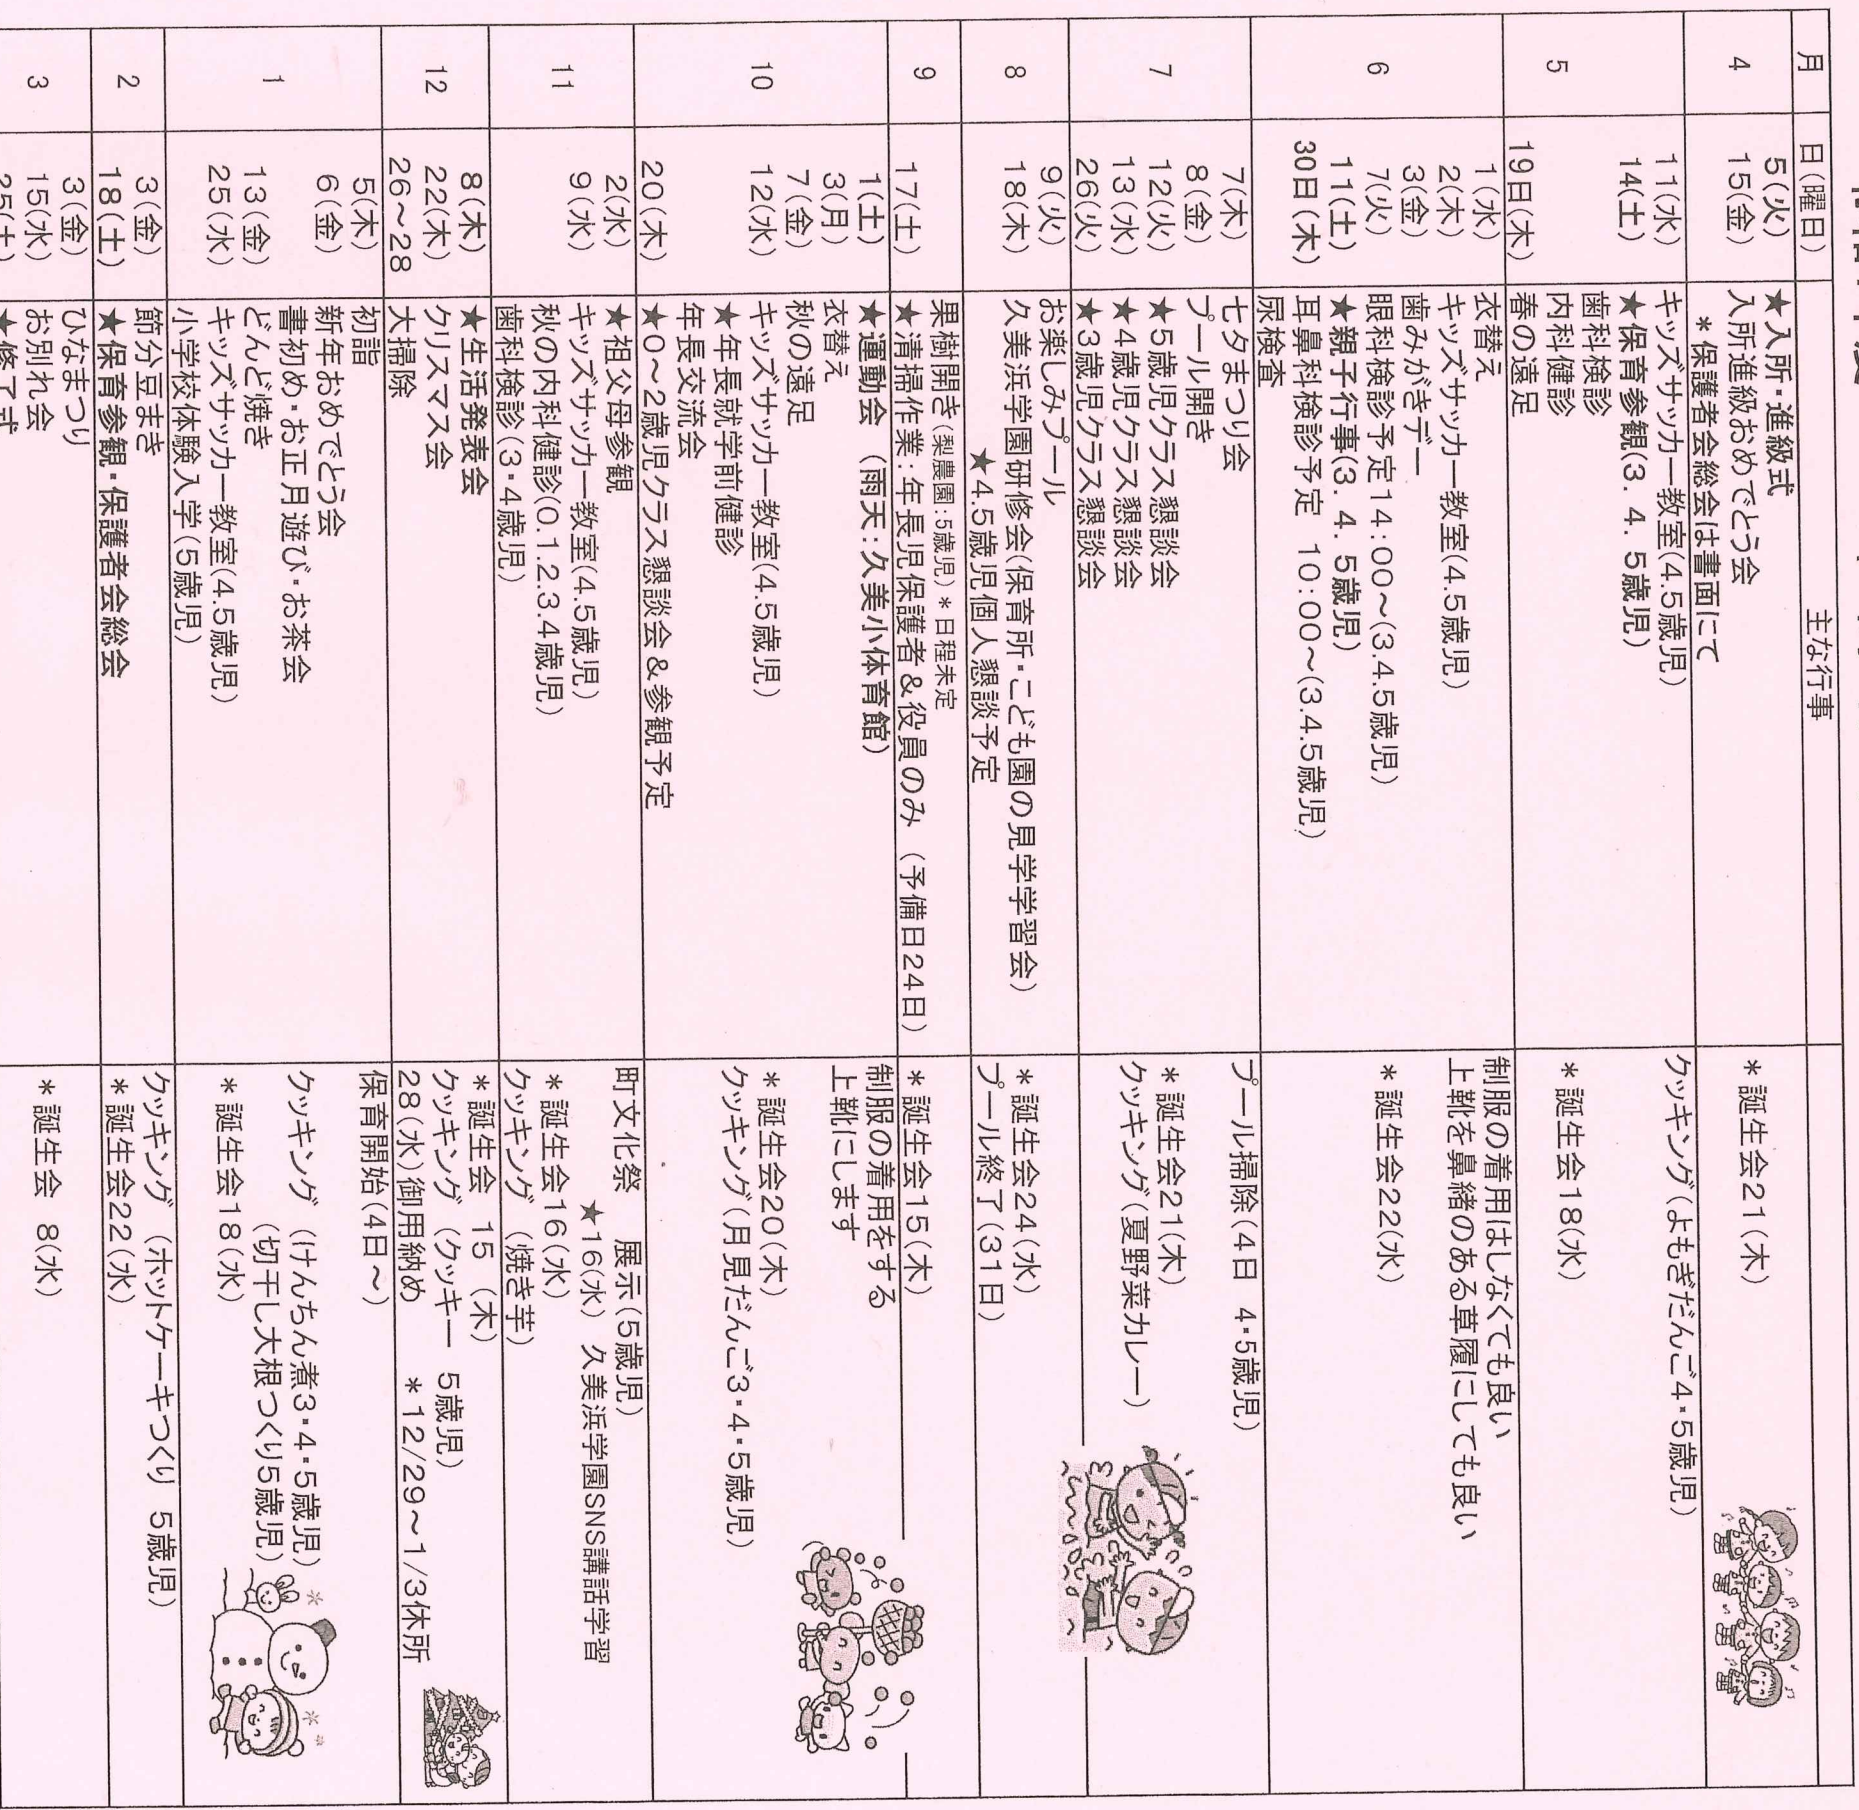 月 日(曜日) 主な行事
4
5(火) ★入所・進級式
15(金) 入所進級おめでとう会
＊保護者会総会は書面にて
＊誕生会21(木)
5
11(水) キッズサッカー教室(4.5歳児)
14(土) ★保育参観(3. 4. 5歳児)
歯科検診
内科健診
19日(木) 春の遠足
クッキング(よもぎだんご4・5歳児)
＊誕生会18(水)
6
1(水) 衣替え
2(木) キッズサッカー教室(4.5歳児)
3(金) 歯みがきデー
7(火) 眼科検診予定14:00～(3.4.5歳児)
11(土) ★親子行事(3. 4. 5歳児)
30日(木) 耳鼻科検診予定 10:00～(3.4.5歳児)
尿検査
制服の着用はしなくても良い
上靴を鼻緒のある草履にしても良い
＊誕生会22(水)
7
7(木) 七夕まつり会
8(金) プール開き
12(火) ★5歳児クラス懇談会
13(水) ★4歳児クラス懇談会
26(火) ★3歳児クラス懇談会
プール掃除(4日 4・5歳児)
＊誕生会21(木)
クッキング(夏野菜カレー)
8
9(火) お楽しみプール
18(木) 久美浜学園研修会(保育所・こども園の見学学習会)
★4.5歳児個人懇談予定
＊誕生会24(水)
プール終了(31日)
9
果樹開き(梨農園:5歳児)＊日程未定
17(土) ★清掃作業:年長児保護者＆役員のみ (予備日24日)
＊誕生会15(木)
10
1(土) ★運動会 (雨天:久美小体育館)
3(月) 衣替え
7(金) 秋の遠足
12(水) キッズサッカー教室(4.5歳児)
★年長就学前健診
年長交流会
20(木) ★0～2歳児クラス懇談会＆参観予定
制服の着用をする
上靴にします
＊誕生会20(木)
クッキング(月見だんご3・4・5歳児)
11
2(水) ★祖父母参観
9(水) キッズサッカー教室(4.5歳児)
秋の内科健診(0.1.2.3.4歳児)
歯科検診(3・4歳児)
町文化祭 展示(5歳児)
★16(水) 久美浜学園SNS講話学習
＊誕生会16(水)
クッキング (焼き芋)
12
8(木) ★生活発表会
22(木) クリスマス会
26～28 大掃除
＊誕生会 15 (木)
クッキング (クッキー 5歳児)
28(水)御用納め ＊12/29～1/3休所
1
5(木) 初詣
6(金) 新年おめでとう会
書初め・お正月遊び・お茶会
13(金) どんど焼き
25(水) キッズサッカー教室(4.5歳児)
小学校体験入学(5歳児)
保育開始(4日～)
クッキング (けんちん煮3・4・5歳児)
(切干し大根つくり5歳児)
＊誕生会18(水)
2
3(金) 節分豆まき
18(土) ★保育参観・保護者会総会
クッキング (ホットケーキつくり 5歳児)
＊誕生会22(水)
3
3(金) ひなまつり
15(水) お別れ会
25(土) ★修了式
＊誕生会 8(水)